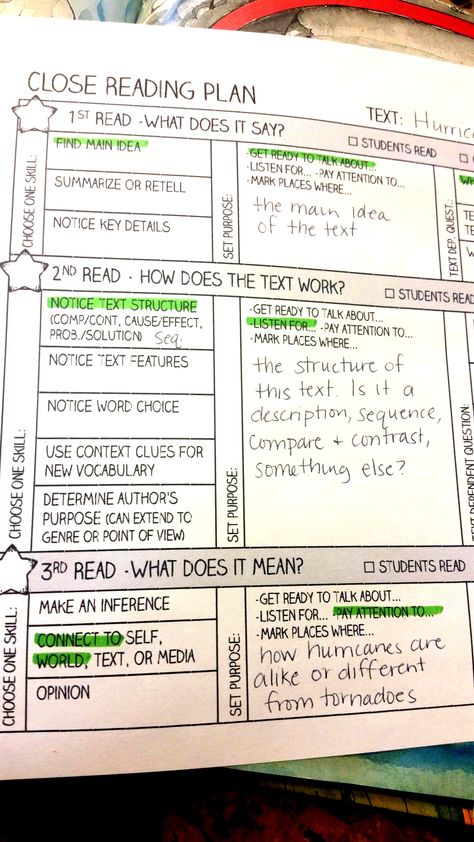 CLOSE READING PLAN
TEXT:
1ST READ - WHAT DOES IT SAY?
☐ STUDENTS READ
CHOOSE ONE SKILL:
FIND MAIN IDEA
SUMMARIZE OR RETELL
NOTICE KEY DETAILS
SET PURPOSE:
-GET READY TO TALK ABOUT...
-LISTEN FOR... -PAY ATTENTION TO...
-MARK PLACES WHERE...
the main idea
of the text
TEXT DEP. QUEST.:
2ND READ - HOW DOES THE TEXT WORK?
☐ STUDENTS READ
CHOOSE ONE SKILL:
NOTICE TEXT STRUCTURE
(COMP/CONT, CAUSE/EFFECT,
PROB./SOLUTION) Seq.
NOTICE TEXT FEATURES
NOTICE WORD CHOICE
USE CONTEXT CLUES FOR
NEW VOCABULARY
DETERMINE AUTHOR'S
PURPOSE (CAN EXTEND TO
GENRE OR POINT OF VIEW)
SET PURPOSE:
-GET READY TO TALK ABOUT...
-LISTEN FOR... -PAY ATTENTION TO...
-MARK PLACES WHERE...
the structure of
this text. Is it a
description, sequence,
compare + contrast,
something else?
DEPENDENT QUESTION:
3RD READ - WHAT DOES IT MEAN?
☐ STUDENTS READ
CHOOSE ONE SKILL:
MAKE AN INFERENCE
CONNECT TO SELF,
WORLD, TEXT, OR MEDIA
OPINION
SET PURPOSE:
-GET READY TO TALK ABOUT...
-LISTEN FOR... -PAY ATTENTION TO...
-MARK PLACES WHERE...
how hurricanes are
alike or different
from tornadoes